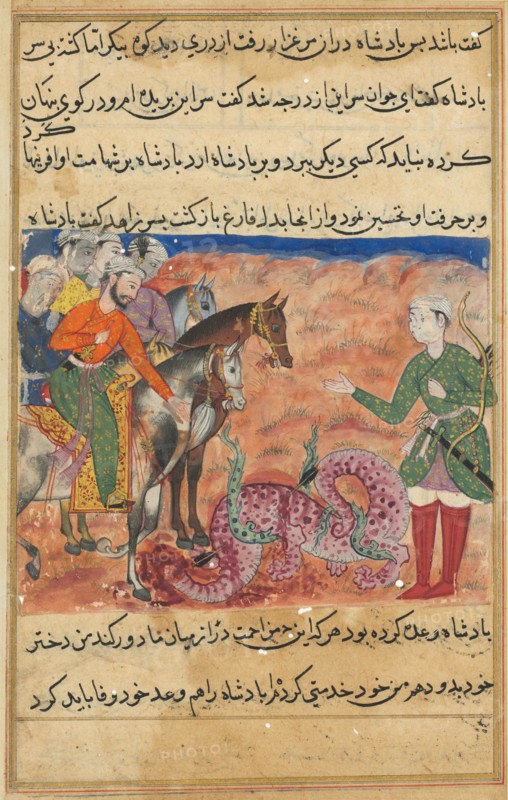 گفت باشد پس بادشاه دران مرغزار رفت اژدری دید کوه پیکر اما کشته بی سر
بادشاه گفت ای جوان سر این اژدر چه شد گفت سر این بریده ام و در کوی پنهان
کرد
کرده نباید که کسی دیگر ببرد و بر بادشاه ارد بادشاه بر شهامت او افرینها
و بر جرفت او تحسین نمود و از انجا بدل فارغ بازگشت پسر زاهد گفت بادشاه
بادشاه وعده کرده بود هر که این زحمت از میان ما دور کند من دختر
خود بدو دهم من خود خدمتی کردم بادشاه را هم وعده خود وفا باید کرد